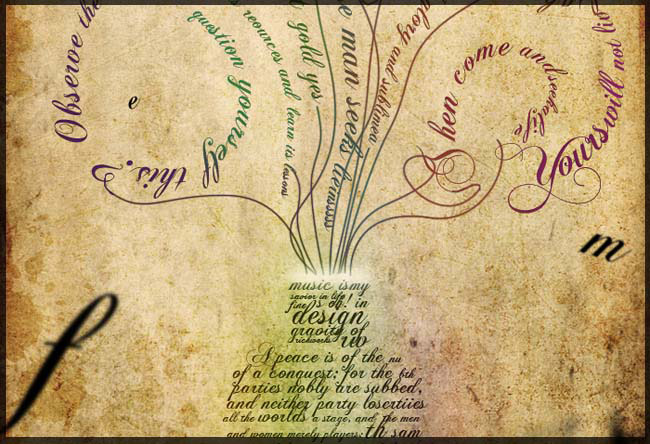 Observe the
question yourself
this?
resources and learn is lessons
gold yes
e man seeks
glory and sublimea
then come and seekalife
Yours will not
e
m
f
music is my
savior in life
fine
is oh! in
design
gravity of
A peace is of the nu
of a conquest; for the 6th
parties nobly are subbed,
and neither party losertiies
all the worlds a stage, and the men
and women merely players: th sam